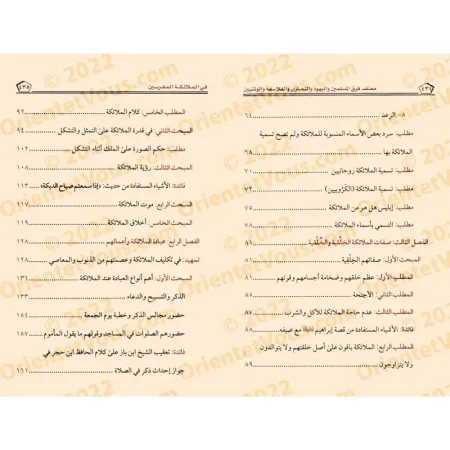 معتقد فرق المسلمين واليهود والنصارى والفلاسفة والوثنيين
٨- الرعد ٦٤
مطلب: سرد بعض الأسماء المنسوبة للملائكة ولم تصح تسمية
الملائكة بها ٦٨
مطلب: تسمية الملائكة روحانيين ٧٠
مطلب: تسمية الملائكة (الكَرُّوبيين) ٧٢
مطلب: إبليس هل هو من الملائكة ٧٥
مطلب: التسمي بأسماء الملائكة ٧٨
الفصل الثالث: صفات الملائكة الخَلْقية والخُلُقية ٨١
المبحث الأول: صفاتهم الخَلْقية ٨١
المطلب الأول: عظم خلقهم وضخامة أجسامهم وقوتهم ٨١
المطلب الثاني: الأجنحة ٨٥
المطلب الثالث: عدم حاجة الملائكة للأكل والشرب ٨٧
فائدة: الأشياء المستفادة من قصة إبراهيم مع ضيفه ٨٨
المطلب الرابع: الملائكة باقون على أصل خلقتهم ولا يتوالدون
ولا يتزاوجون ٨٩
في الملائكة المقربين ٤٣٥
المطلب الخامس: كلام الملائكة ٩٢
المبحث الثاني: في قدرة الملائكة على التمثل والتشكل ٩٤
مطلب: حكم الصورة على الملك أثناء التشكل ١٠٢
المبحث الثالث: رؤية الملائكة ١٠٨
فائدة: الأشياء المستفادة من حديث: «إذا سمعتم صياح الديكة» ١١٣
المبحث الرابع: موت الملائكة
المبحث الخامس: أخلاق الملائكة ١١٩
الفصل الرابع: عبادة الملائكة وأعمالهم ١٢٨
تمهيد: في تكاليف الملائكة وعصمتهم من الذنوب والمعاصي ١٢٨
المبحث الأول: أهم أنواع العبادة عند الملائكة ١٣١
الذكر والتسبيح والدعاء ١٣٣
حضور مجالس الذكر وخطبة يوم الجمعة ١٥٤
حضورهم الصلوات في المساجد وقولهم ما يقول المأموم ١٥٧
فائدة: تعقيب الشيخ ابن باز على كلام الحافظ ابن حجر في
جواز إحداث ذكر في الصلاة ١٦١
© 2022
OrientetVous.com